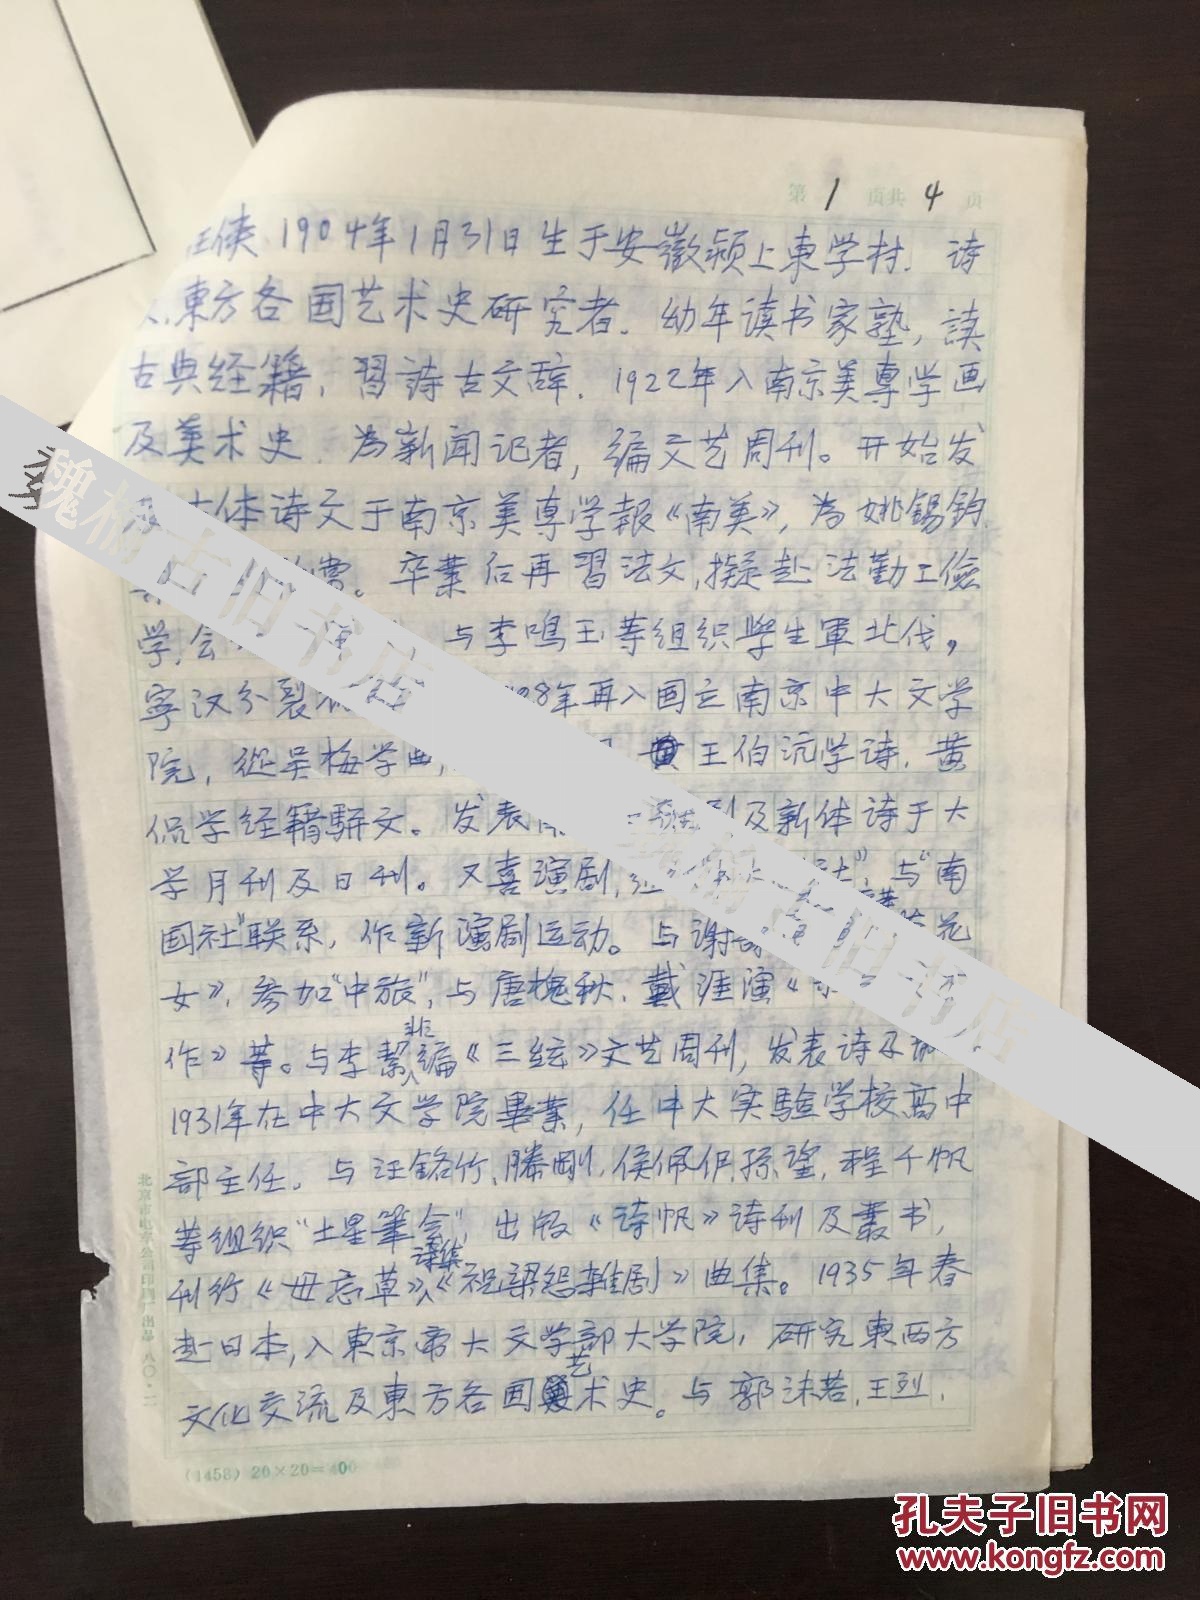 第1页共4页
侠、1904年1月31日生于安徽颍上東学村.诗
東方各国艺术史研究者.幼年读书家塾,读
古典经籍,習诗古文辞.1922年入南京美專学画
及美术史.为新闻记者,编文艺周刊。开始发
体诗文于南京美專学報《南美》,为姚锡钧
。卒業后再習法文,擬赴法勤工儉
学,会 与李鸣玉等组织學生軍北伐,
寧汉分裂 28年再入国立南京中大文学
院,從吴梅学曲, 王伯沆学诗.黄
侃学经籍駢文。发表 剧及新体诗于大
学月刊及日刊。又喜演剧, 社”与“南
国社”联系,作新演剧运动。与谢 花
女》.参加“中旅”,与唐槐秋.戴涯演《
作》等。与李絜非编《三絃》文艺周刊,发表诗及
1931年在中大文学院畢業,任中大实驗学校高中
部主任。与汪铭竹、滕刚,侯佩伊,孫望,程千帆
等组织“土星筆会”出版《诗帆》诗刊及叢书,
刊行《毋忘草》诗集《祝梁怨雜剧》曲集。1935年春
赴日本,入東京帝大文学部大学院,研究東西方
文化交流及東方各国艺术史。与郭沫若,王烈、
北京市电车公司印刷厂出品 八〇·二
(1458) 20×20=400
魂 古旧书店
古旧书店
孔夫子旧书网
www.kongfz.com